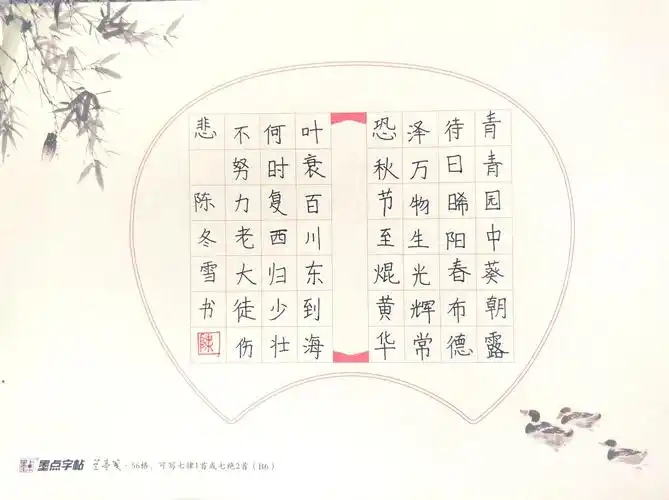 青青园中葵朝露
待日晞阳春布德
泽万物生光辉常
恐秋节至焜黄华
叶衰百川东到海
何时复西归少壮
不努力老大徒伤
悲 陈冬雪书
陈
墨点字帖 兰亭笺·56格,可写七律1首或七绝2首(B6)